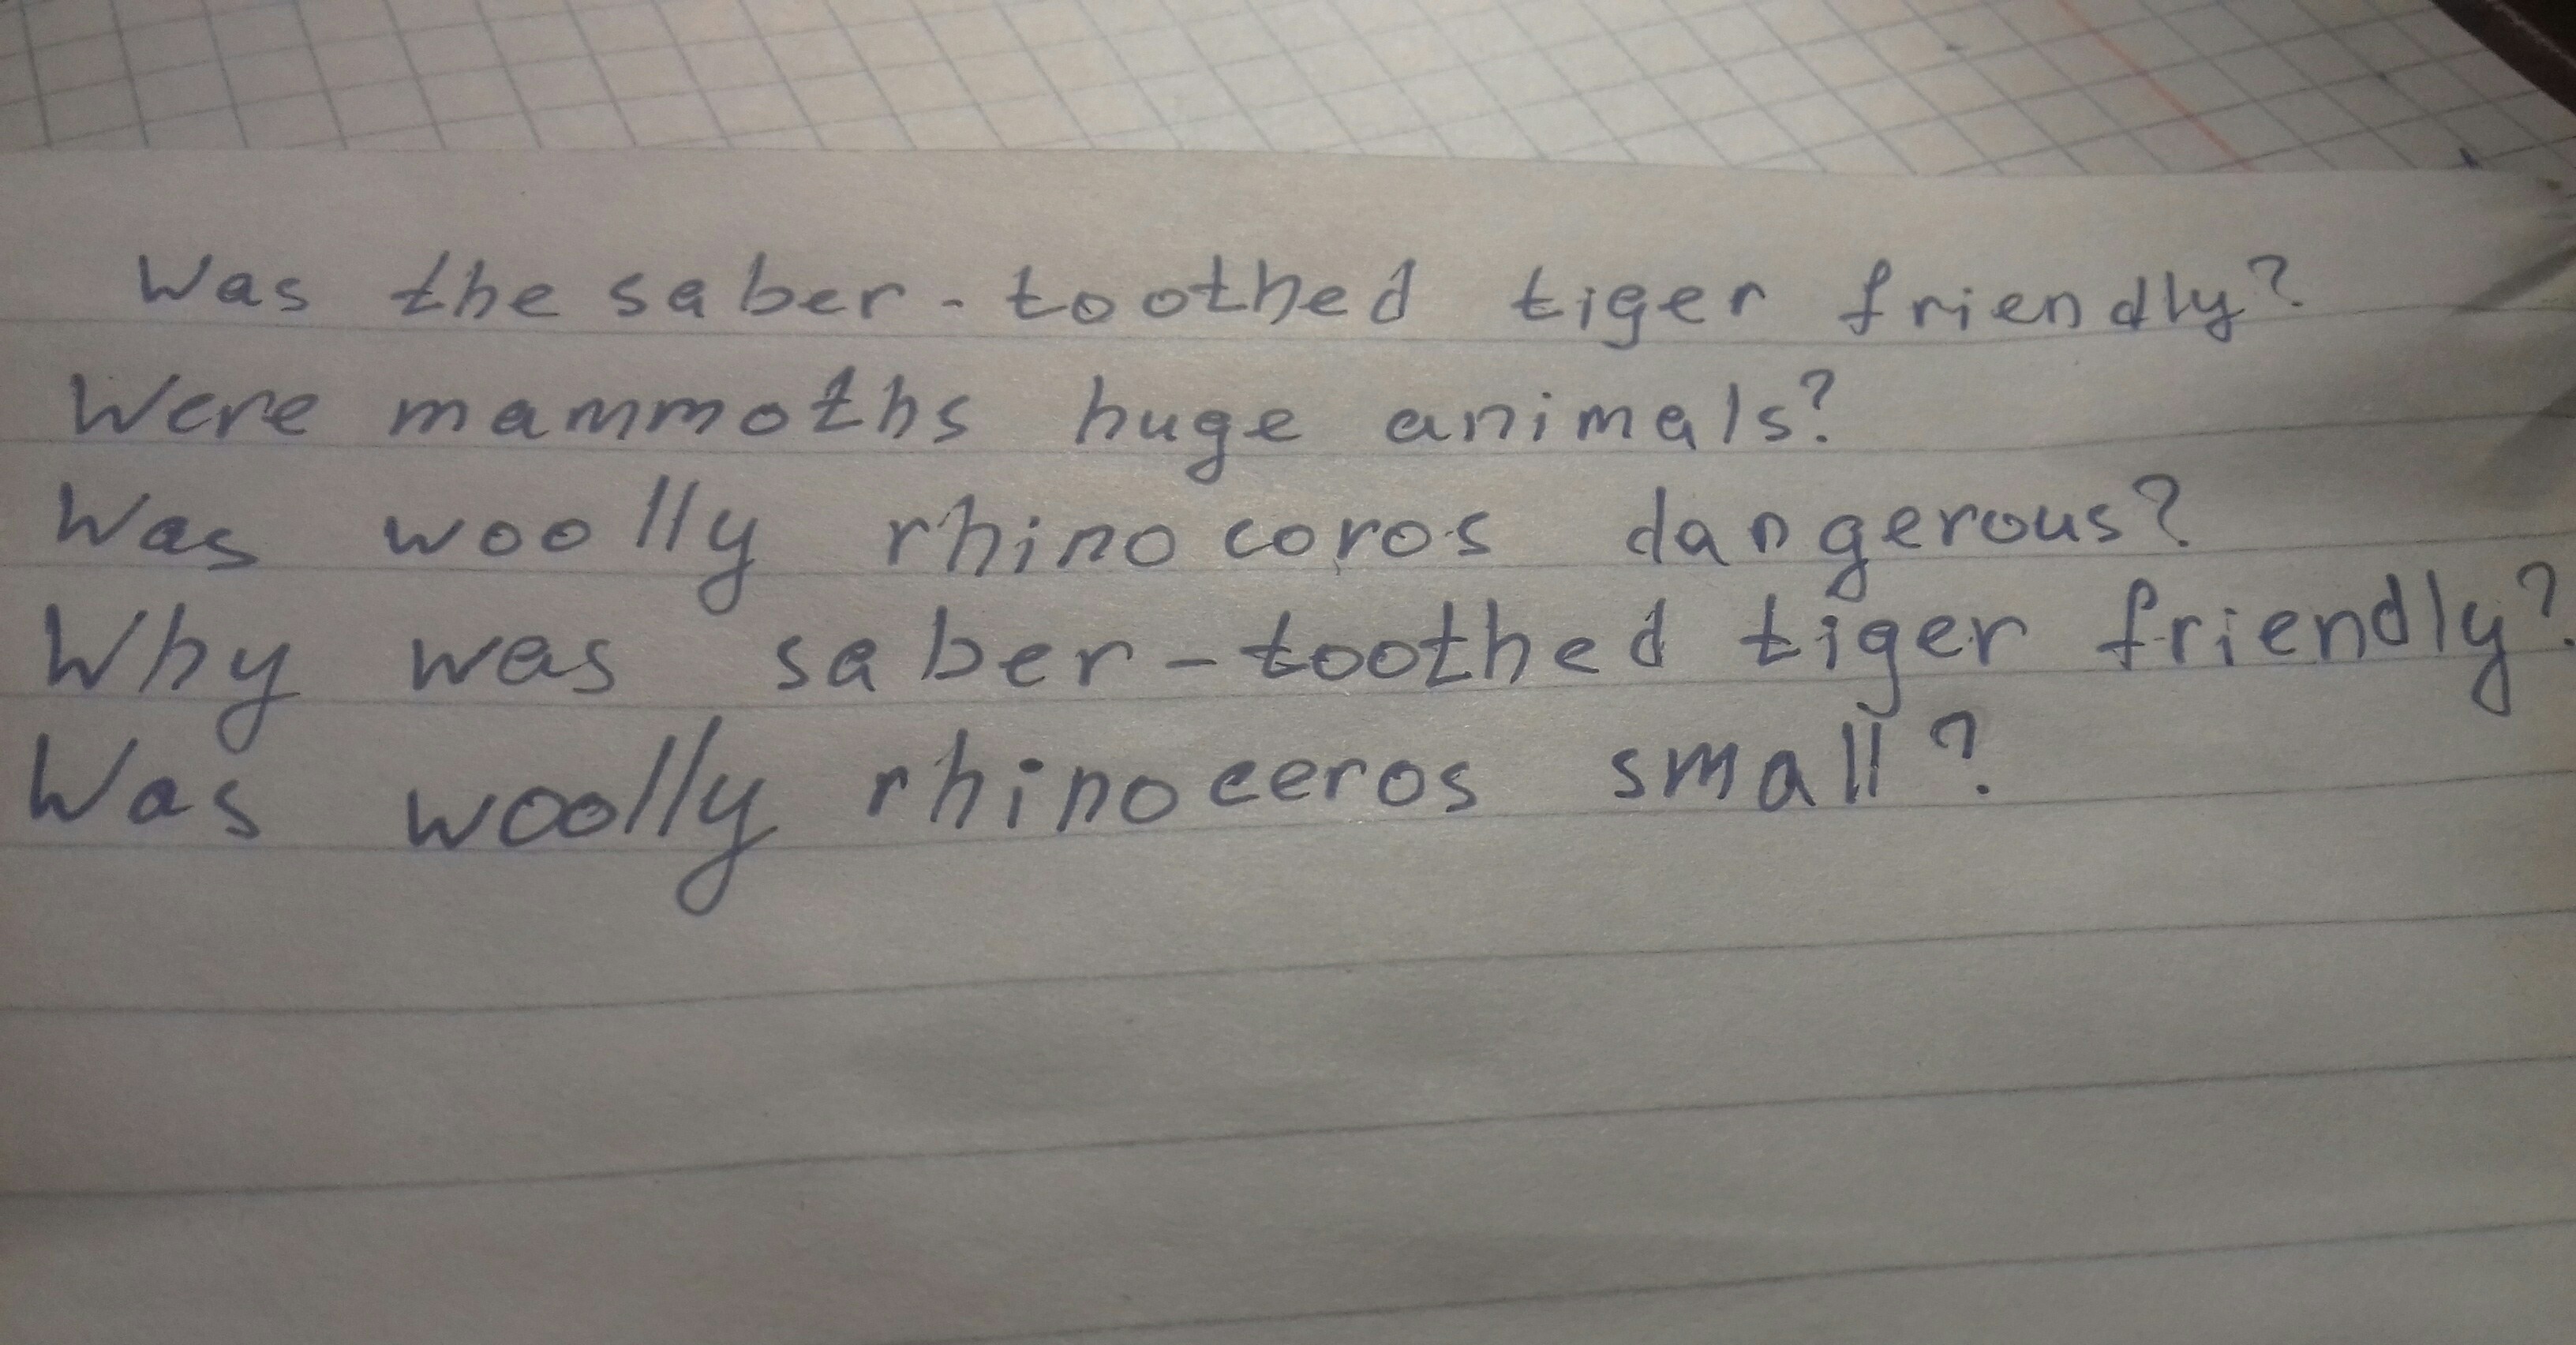 Was the saber-toothed tiger friendly?
Were mammoths huge animals?
Was woolly rhinocoros dangerous?
Why was saber-toothed tiger friendly?
Was woolly rhinoceros small?